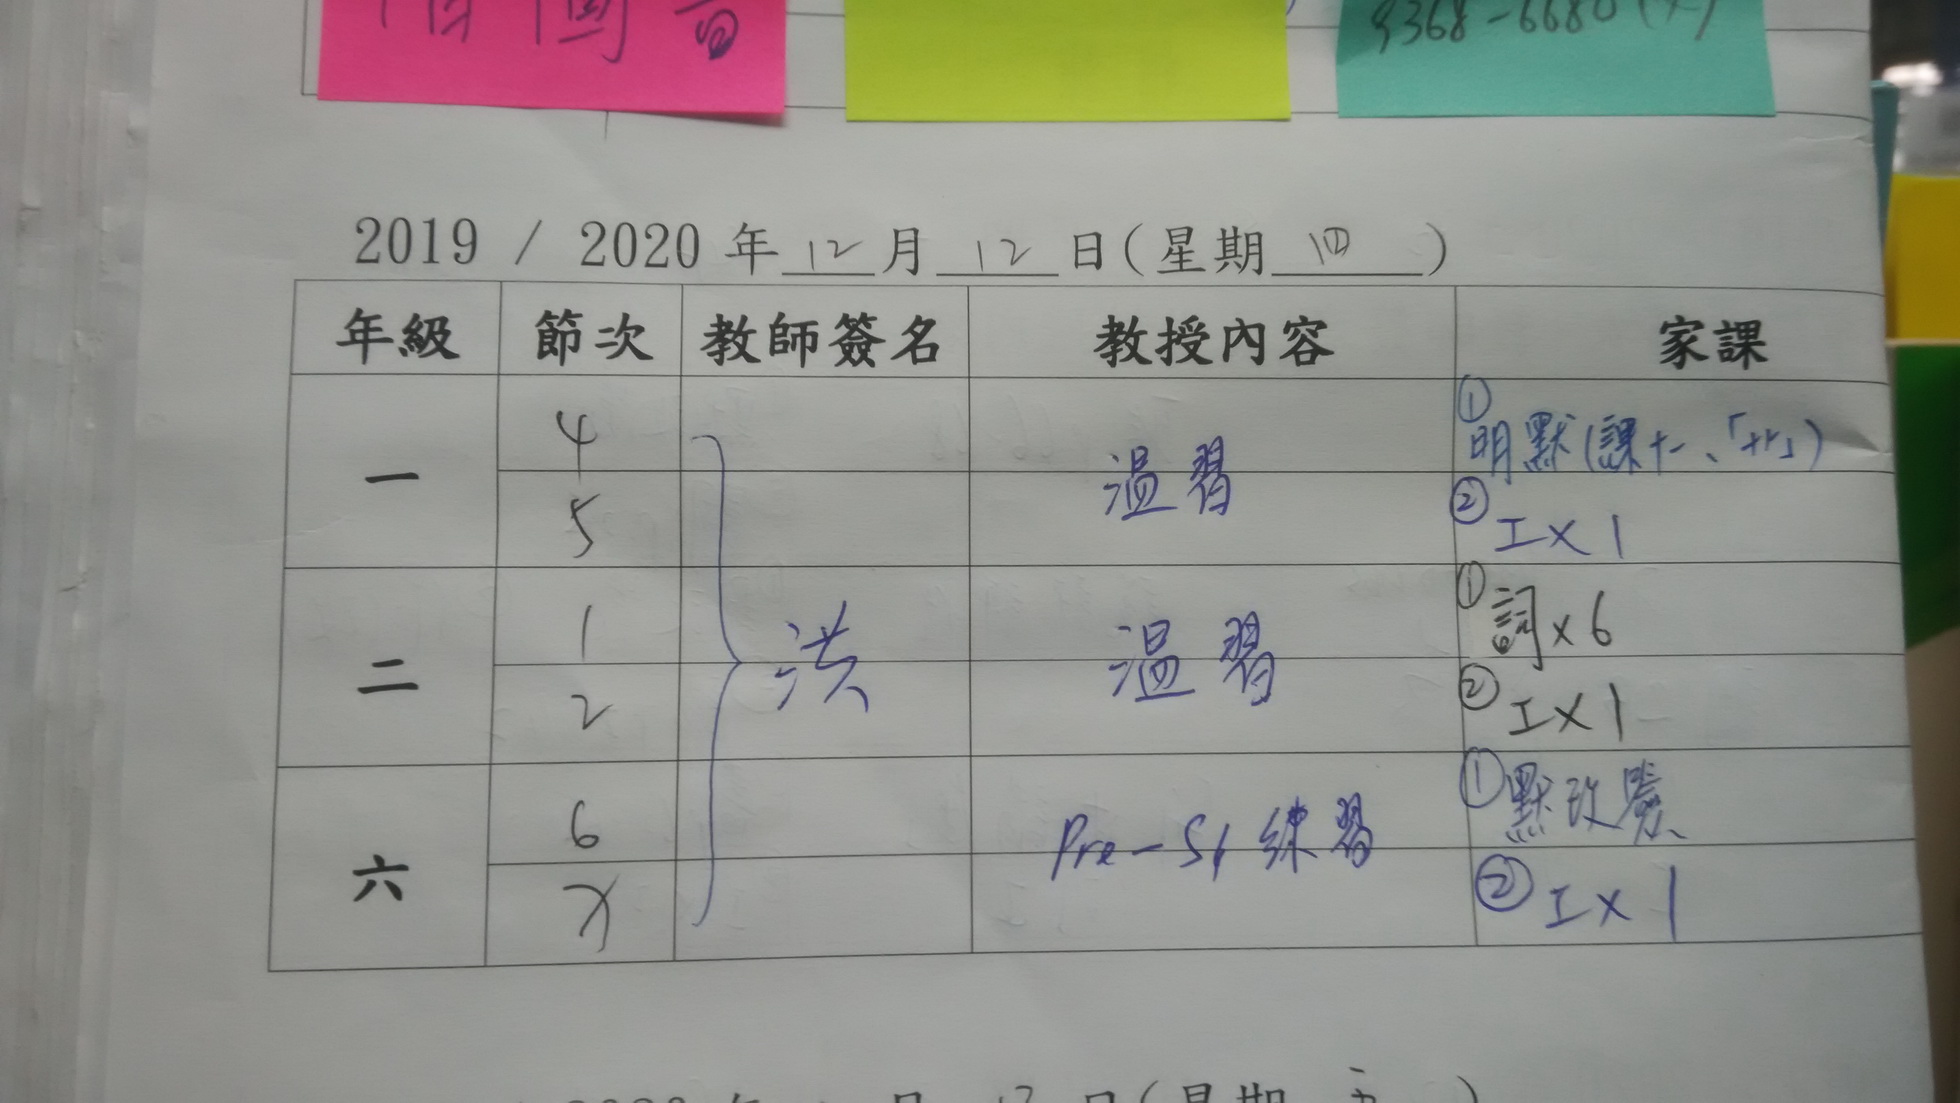 9368-6680
2019 / 2020 年 12 月 12 日(星期 四 )
年級 節次 教師簽名 教授內容 家課
一 4 温習 ① 明默(課十一、「艹」)
5 ② 工×1
二 1 洪 温習 ① 詞×6
2 ② 工×1
六 6 Pre-S1 練習 ① 默改
② 工×1
日(星期 )